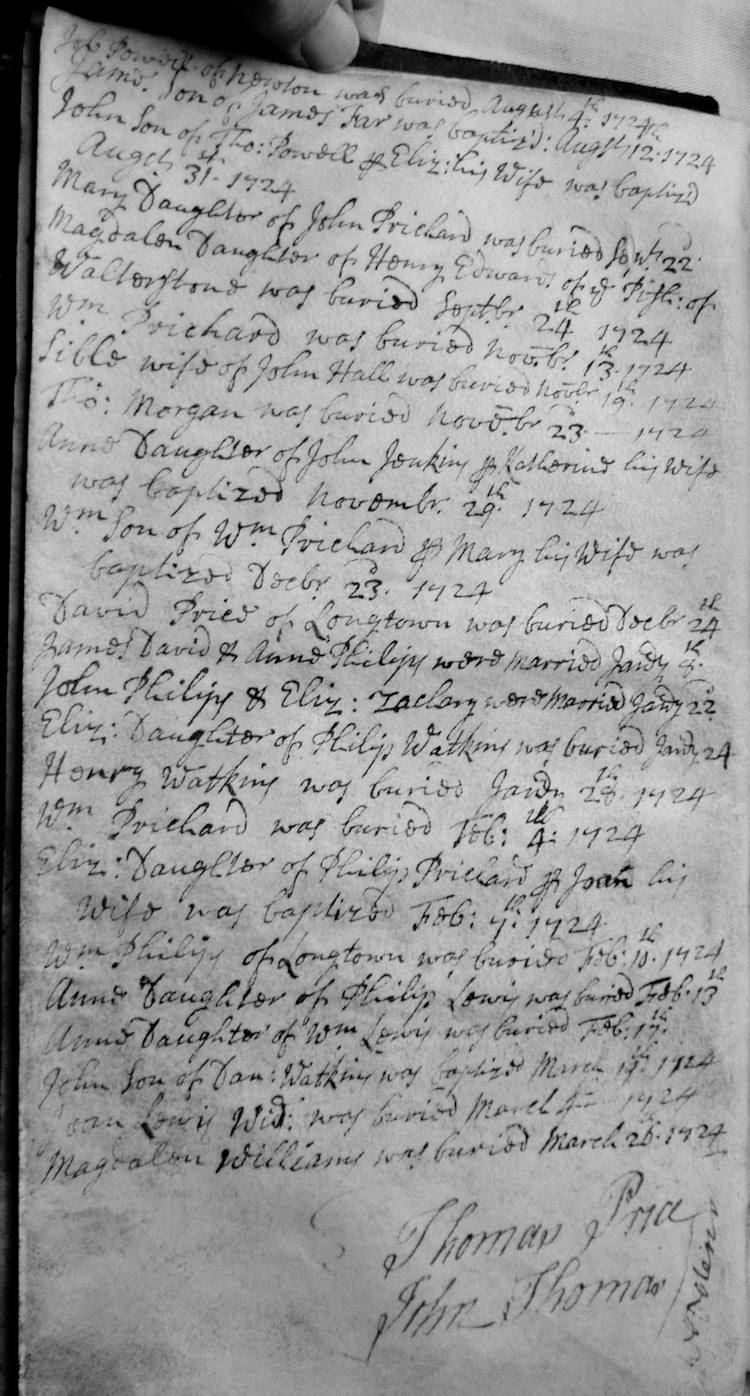 Job Powell of Newton was buried August 4th: 1724
James Son of James Far was baptiz'd: Augst 12th: 1724
John Son of Tho: Powell p Eliz: his Wife was baptiz'd
Augst 31st. 1724
Mary Daughter of John Prichard was buried Septr. 22d.
Magdalen Daughter of Henry Edwards of ye Pish: of
Walterstone was buried Septbr 24th 1724
Wm Prichard was buried Novebr. 13th. 1724
Sible wife of John Hall was buried Novbr 19th. 1724
Tho: Morgan was buried Novebr 23d — 1724
Anne Daughter of John Jenkins p Katherine his Wife
was baptized Novembr. 29th. 1724
Wm Son of Wm Prichard p Mary his Wife was
baptized Decbr 23d. 1724
David Price of Longtown was buried Decbr 24th
James David & Anne Philips were married Janry 8th.
John Philips & Eliz: Zachary were Married Janry 22d
Eliz: Daughter of Philip Watkins was buried Janry 24
Henry Watkins was buried Janry 28th. 1724
Wm Prichard was buried Feb: 4th: 1724
Eliz: Daughter of Philip Prichard p Joan his
Wife was baptized Feb: 7th: 1724
Wm Philips of Longtown was buried Feb: 10th. 1724
Anne Daughter of Philip Lewis was buried Feb. 13th
Anne Daughter of Wm Lewis was buried Feb: 17th.
John Son of Dan: Watkins was baptized March 1724
Joan Lewis Wid: was buried March 1724
Magdalen Williams was buried March 1724
Thomas Price
John Thomas